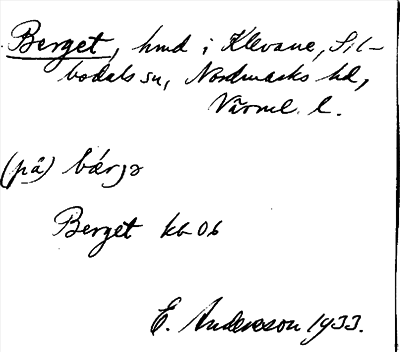 Berget, hmd i Klevane, Sil-
bodals sn, Nordmarks hd,
Värml. l.
(på) bærjə
Berget kb 06
E. Anderson 1933.